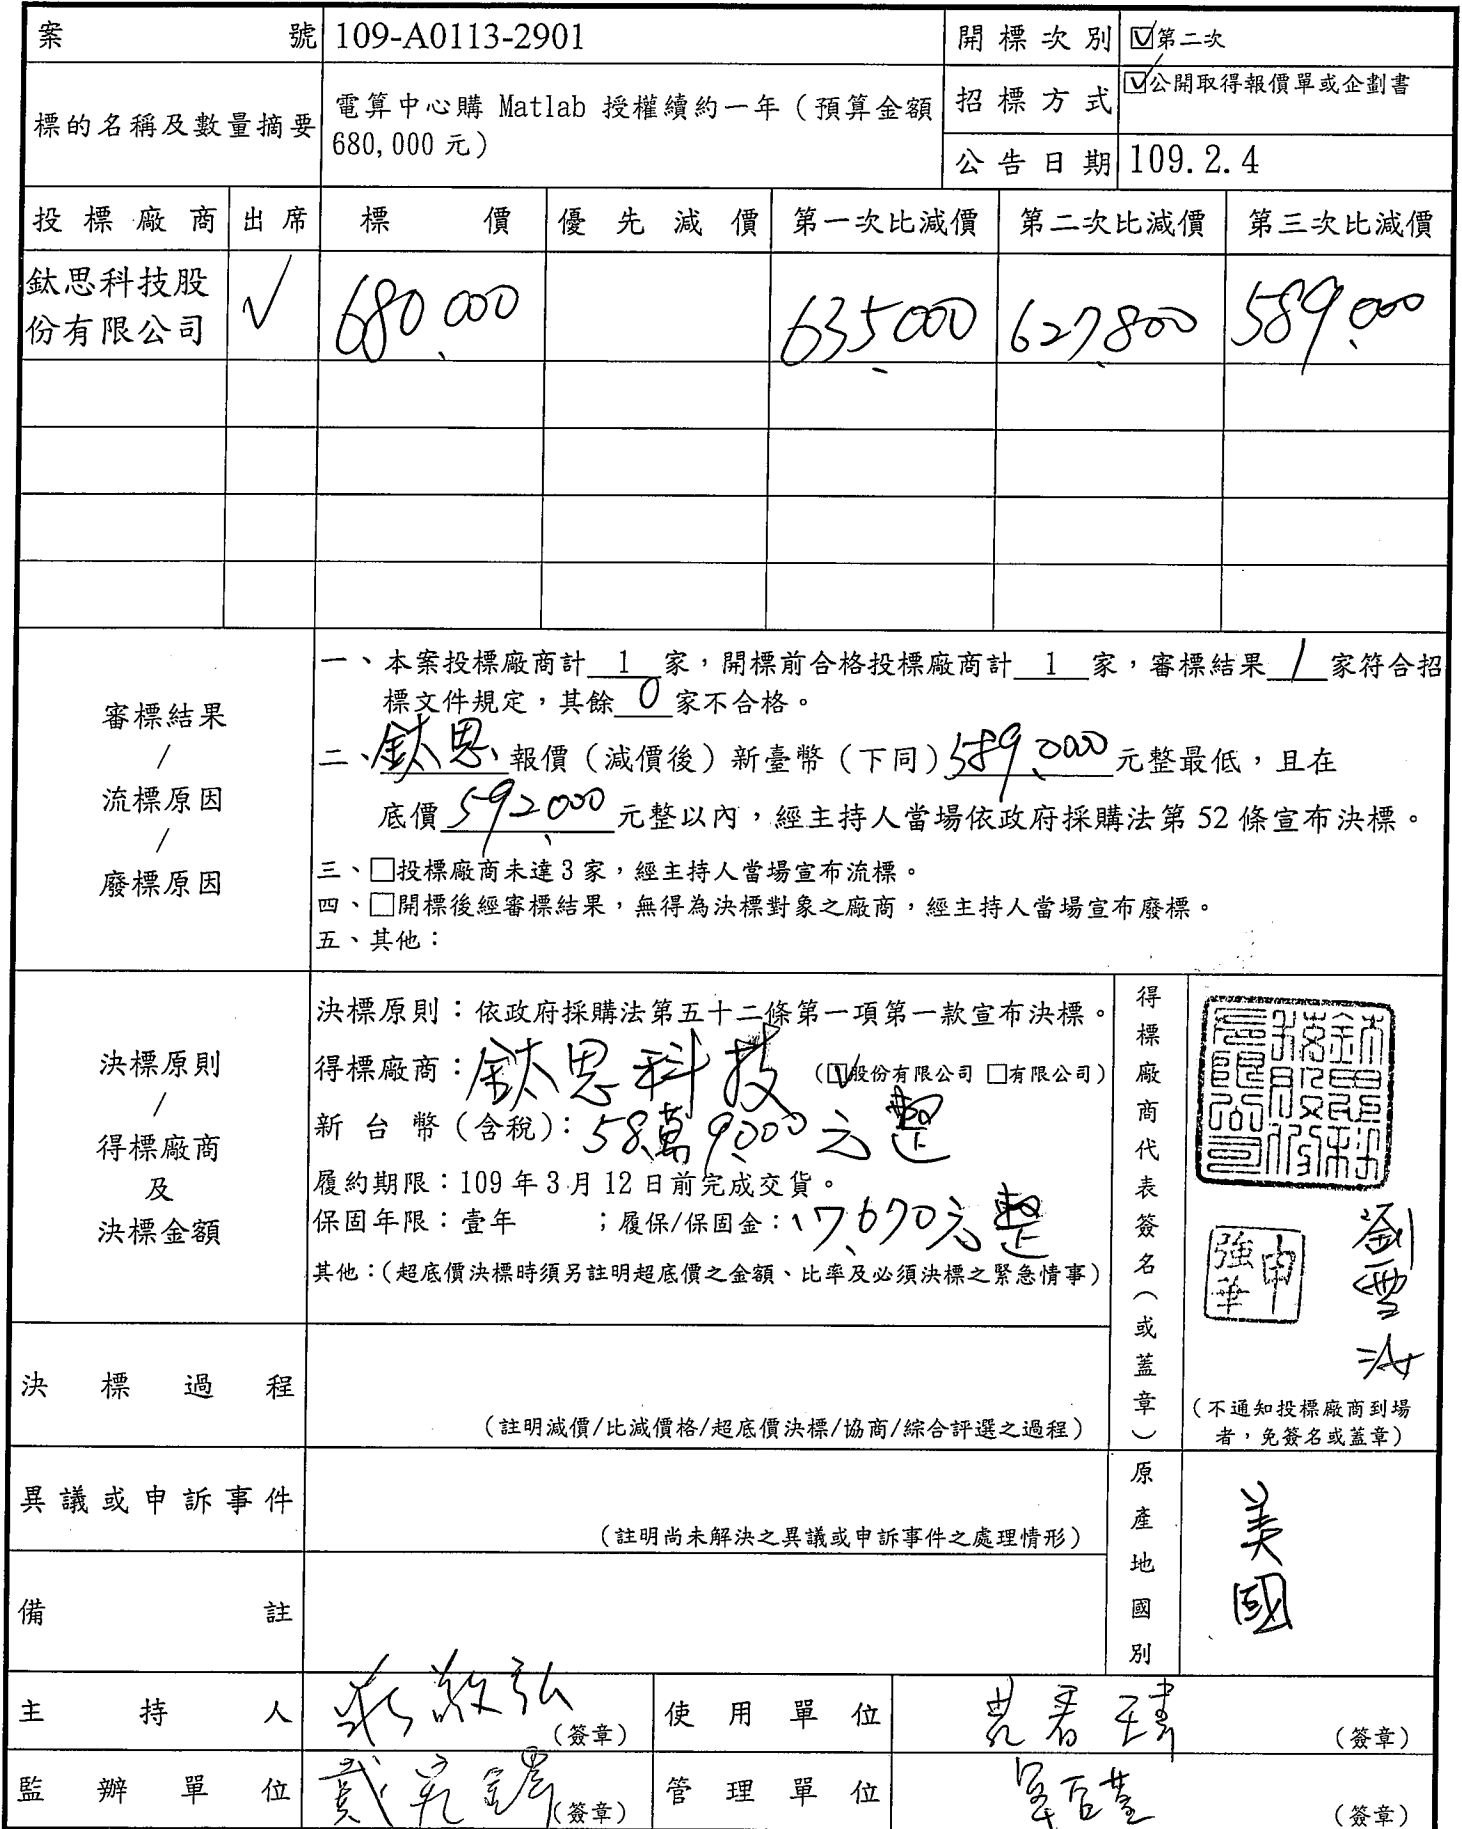 案號 109-A0113-2901 開標次別 ☑第二次
標的名稱及數量摘要 電算中心購 Matlab 授權續約一年（預算金額
680,000 元）
招標方式 ☑公開取得報價單或企劃書
公告日期 109.2.4
投標廠商 出席 標價 優先減價 第一次比減價 第二次比減價 第三次比減價
鈦思科技股
份有限公司 √ 680,000 635,000 627,800 589,000
審標結果
/
流標原因
/
廢標原因
一、本案投標廠商計 1 家，開標前合格投標廠商計 1 家，審標結果 1 家符合招
標文件規定，其餘 0 家不合格。
二、鈦思 報價（減價後）新臺幣（下同）589,000 元整最低，且在
底價 592,000 元整以內，經主持人當場依政府採購法第 52 條宣布決標。
三、□投標廠商未達 3 家，經主持人當場宣布流標。
四、□開標後經審標結果，無得為決標對象之廠商，經主持人當場宣布廢標。
五、其他：
決標原則
/
得標廠商
及
決標金額
決標原則：依政府採購法第五十二條第一項第一款宣布決標。
得標廠商：鈦思科技 （☑股份有限公司 □有限公司）
新台幣（含稅）：58萬9,000元整
履約期限：109 年 3 月 12 日前完成交貨。
保固年限：壹年 ；履保/保固金：17,670元整
其他：（超底價決標時須另註明超底價之金額、比率及必須決標之緊急情事）
得標廠商代表簽名（或蓋章）
鈦思科技股份有限公司
申強華
劉雪
（不通知投標廠商到場
者，免簽名或蓋章）
決標過程
（註明減價/比減價格/超底價決標/協商/綜合評選之過程）
異議或申訴事件
（註明尚未解決之異議或申訴事件之處理情形）
原產地國別 美國
備註
主持人 （簽章） 使用單位 （簽章）
監辦單位 戴 （簽章） 管理單位 （簽章）